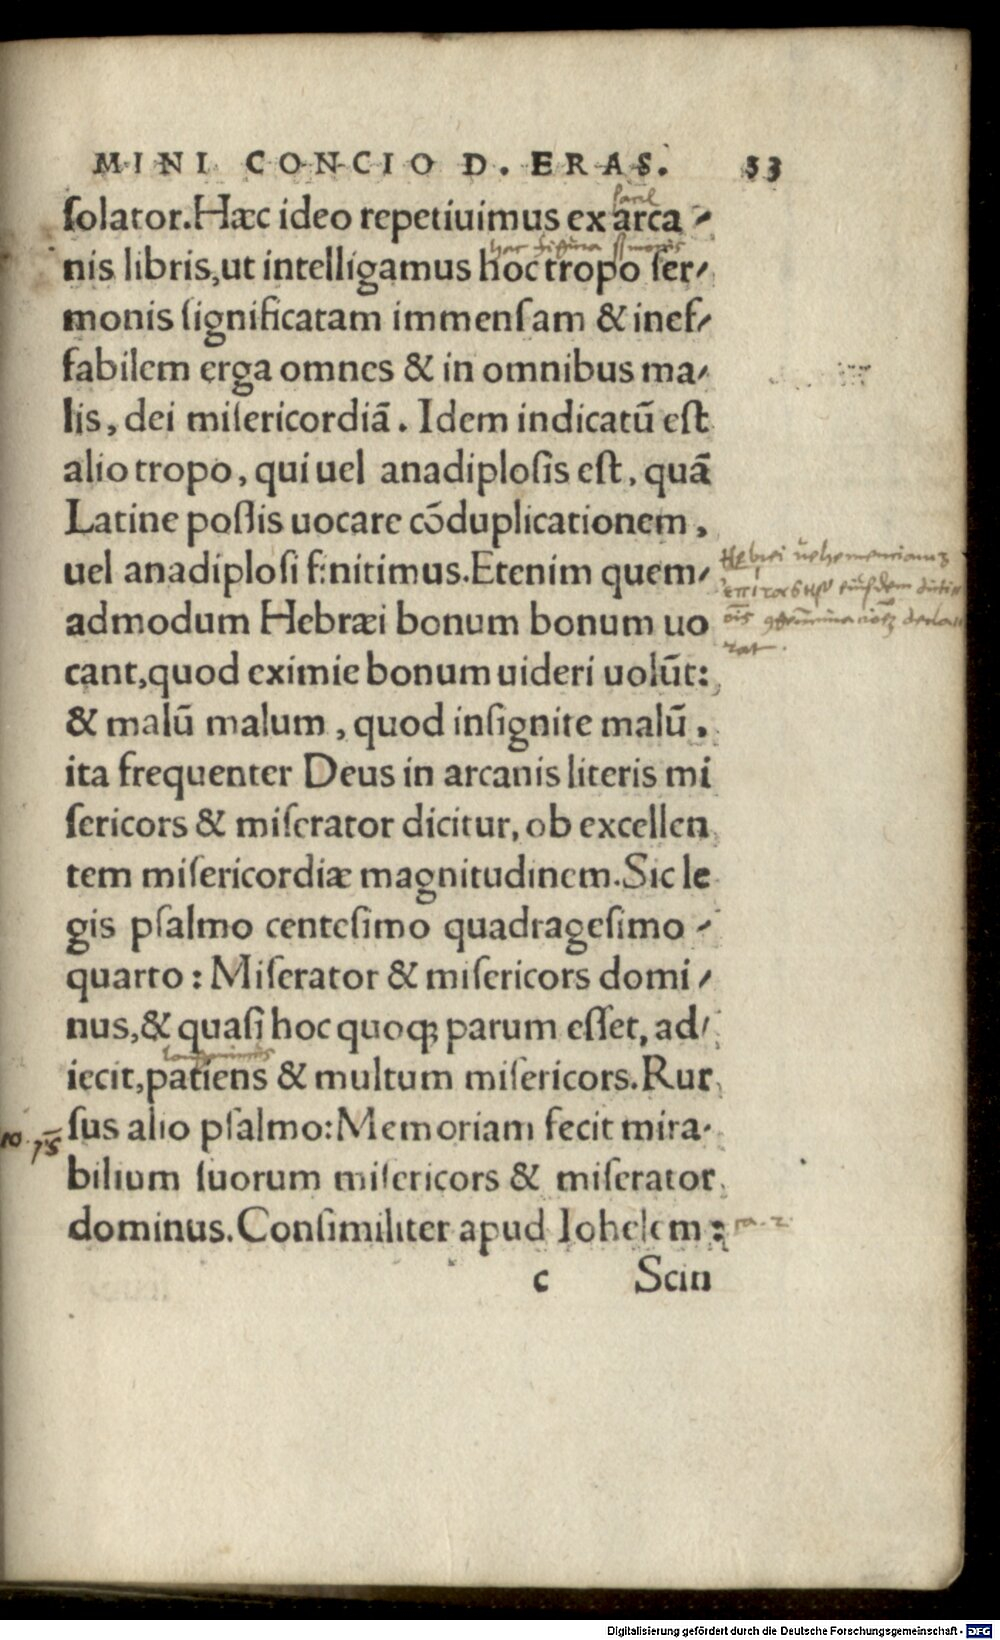 MINI CONCIO D. ERAS. 33
solator. Hæc ideo repetiuimus ex arca-
nis libris, ut intelligamus hoc tropo ser-
monis significatam immensam & inef-
fabilem erga omnes & in omnibus ma-
lis, dei misericordiã. Idem indicatũ est
alio tropo, qui uel anadiplosis est, quã
Latine possis uocare cõduplicationem,
uel anadiplosi finitimus. Etenim quem-
admodum Hebræi bonum bonum uo
cant, quod eximie bonum uideri uolũt:
& malũ malum, quod insignite malũ,
ita frequenter Deus in arcanis literis mi
sericors & miserator dicitur, ob excellen
tem misericordiæ magnitudinem. Sic le
gis psalmo centesimo quadragesimo-
quarto: Miserator & misericors domi-
nus, & quasi hoc quoq; parum esset, ad-
iecit, patiens & multum misericors. Rur
sus alio psalmo: Memoriam fecit mira-
bilium suorum misericors & miserator
dominus. Consimiliter apud Iohelem:
c Scin
Digitalisierung gefördert durch die Deutsche Forschungsgemeinschaft - DFG